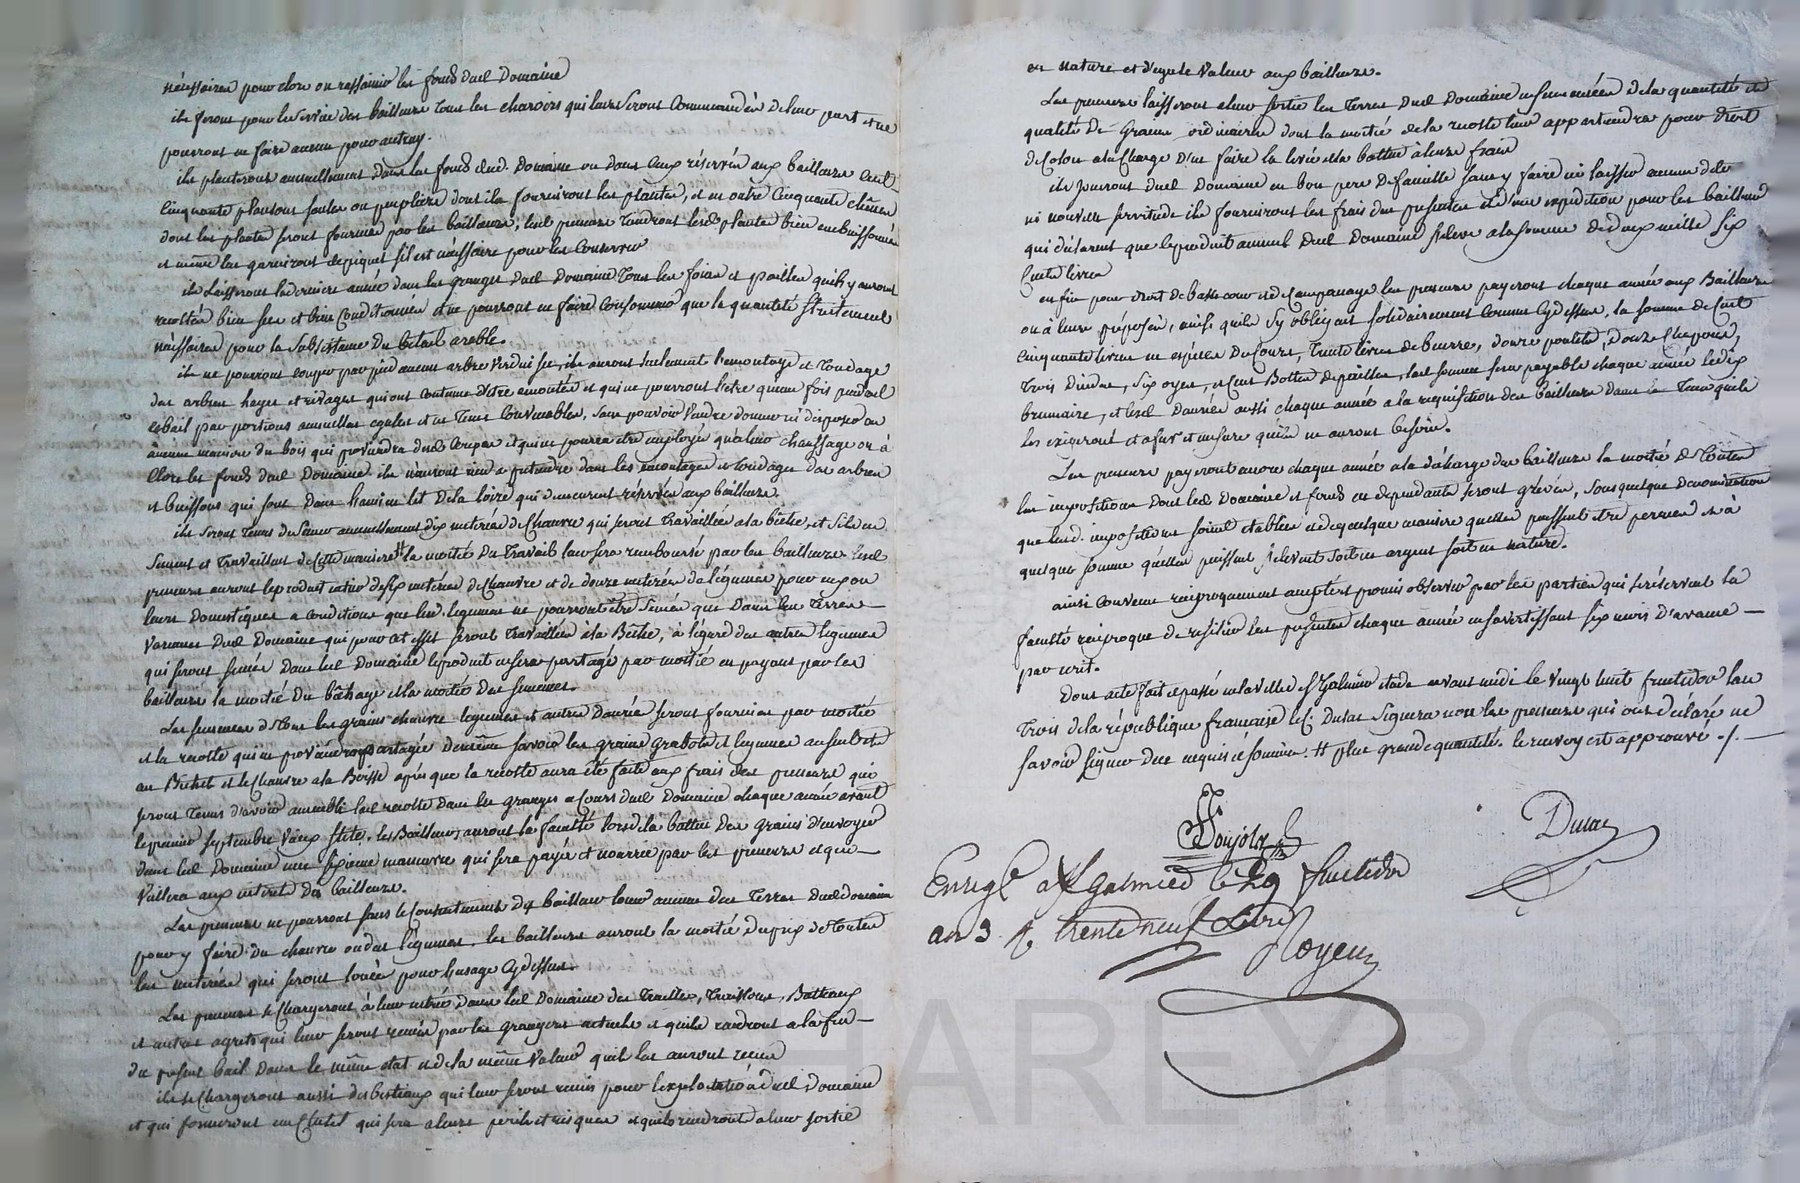 nécéssaires pour clore ou rassainir les fonds dud. Domaine
ils feront pour le service des bailleurs tous les charrois qui leurs seront Commandés de leur part et ne
pourront en faire aucun pour autruy.
ils planteront annuellement dans les fonds dud. Domaine ou dans Ceux réservés aux bailleurs Cent
Cinquante plansons saules ou peupliers dont ils fourniront les plantes, et en outre Cinquante chênes
dont les plantes seront fournies par les bailleurs, lesd. preneurs tiendront lesd. plantes bien embuissonnées
et même les garniront de piquets s'il est nécéssaire pour les Conserver
ils laisseront la derniere année dans les granges dud. Domaine tous les foins et pailles qu'ils y auront
recoltés bien secs et bien Conditionnés et ne pourront en faire Consommer que la quantité strictement
nécéssaire pour la subsistance du bétail arable.
ils ne pourront couper par pied aucun arbre verd ni sec, ils auront seulement l'emontage et tondage
des arbres hayes et rivages qui ont Coutume d'être emontés et qui ne pourront l'etre qu'une fois pendant
le bail par portions annuelles egales et en tems Convenables, sans pouvoir vendre donner ni disposer en
aucune maniere du bois qui proviendra desd. Coupes et qui ne pourra être employé qu'a leur chauffage ou à
Clore les fonds dud. Domaine ils n'auront rien a pretendre dans les emontages et tondages des arbres
et buissons qui sont dans l'ancien lit de la loire qui demeurent réservés aux bailleurs.
ils seront tenus de semer annuellement dix metérées de Chanvre qui seront travaillées a la bêche, et s'ils en
sement et travaillent de cette maniere # la moitié du travail leur sera remboursé par les bailleurs lesd.
preneurs auront le produit entier de six metérées de Chanvre et de douze metérées de légumes pour eux ou
leurs domestiques a condition que les d. legumes ne pourront être semés que dans les terres
varennes dud. Domaine qui pour cet effet seront travaillées à la Bêche, à l'égard des autres legumes
qui seront semés dans led. Domaine le produit en sera partagé par moitié en payant par les
bailleurs la moitié du bêchage et la moitié des semences.
Les semences de tous les grains chanvre legumes et autres denrées seront fournies par moitié
et la recolte qui en proviendra partagée de même savoir les grains grabots et legumes
au Bichet et le Chanvre a la Boisse après que la récolte aura été faite aux frais des preneurs qui
seront tenus d'avoir amenblé lad. recolte dans les granges et cours dud. Domaine chaque année avant
le premier septembre vieux stile. les Bailleurs auront la faculté lors de la battue des grains d'envoyer
dans led. Domaine une sixieme manoeuvre qui sera payée et nourrie par les preneurs et qui
veillera aux interets des bailleurs.
Les preneurs ne pourront sans le Consentement des bailleurs louer aucunes des terres dud. domaine
pour y faire du chanvre ou des légumes. les bailleurs auront la moitié du prix de toutes
les metérées qui seront louées pour l'usage Cydessus.
Les preneurs se Chargeront à leur entrée dans led. Domaine des Trailles, Traissons, Batteaux
et autres agrets qui leur seront remis par les grangers actuels et qu'ils rendront a la fin
du présent bail dans le même état et de la même valeur qu'ils les auront reçus
ils se Chargeront aussi des bestiaux qui leur seront remis pour l'exploitation dud. Domaine
et qui formeront un Chetel qui sera a leurs perils et risques et qu'ils rendront a leur sortie
en nature et d'egale valeur aux bailleurs.
Les preneurs laisseront a leur sortie les terres dud. Domaine ensemencées de la quantité et
qualité de Grains ordinaires dont la moitié de la recolte leur appartiendra pour droit
de Colon a la Charge d'en faire la levée et la battue à leurs frais
ils jouiront dud. Domaine en bon pere de famille sans y faire ni laisser aucun délit
ni nouvelle servitude ils fourniront les frais des présentes et d'une expédition pour les bailleurs
qui déclarent que le produit annuel dud. Domaine s'eleve a la somme de deux mille six
Cents livres
enfin pour droit de basse cour et de Campanage les preneurs payeront chaque année aux Bailleurs
ou à leurs préposés, ainsi qu'ils s'y obligent solidairement Comme Cydessus, la somme de Cent
Cinquante livres en espéces du Cours, Trente livres de beurre, douze poulets, Douze Chapons,
trois Dindes, six oyes, et Cent Bottes de pailles, lad. somme sera payable chaque année le dix
brumaire, et lesd. Denrées aussi chaque année a la requisition des bailleurs dans le tems qu'ils
les exigeront et a fur et mesure qu'ils en auront besoin.
Les preneurs payeront encore chaque année a la décharge des bailleurs la moitié de toutes
les impositions dont led. Domaine et fonds en dependants seront grévés, sous quelque denomination
que lesd. impositions soient etablies et de quelque maniere qu'elles puissent être percues et à
quelque somme qu'elles puissent s'elever soit en argent soit en nature.
ainsi Convenu reciproquement accepté et promis observer par les parties qui se réservent la
faculté réciproque de résilier les présentes chaque année en s'avertissant six mois d'avance
par ecrit.
Dont acte fait et passé en la ville de St. Galmier etude avant midi le vingt huit fructidor l'an
Trois de la république francaise le C. Dusac signera non les preneurs qui ont déclaré ne
savoir signer de ce requis et sommés. # plus grande quantité. le renvoy est approuvé ./.
Dusac
Enregé. a St galmier le 29 fructidor
an 3. R. trente neuf Livres
Royen
HAREYRON